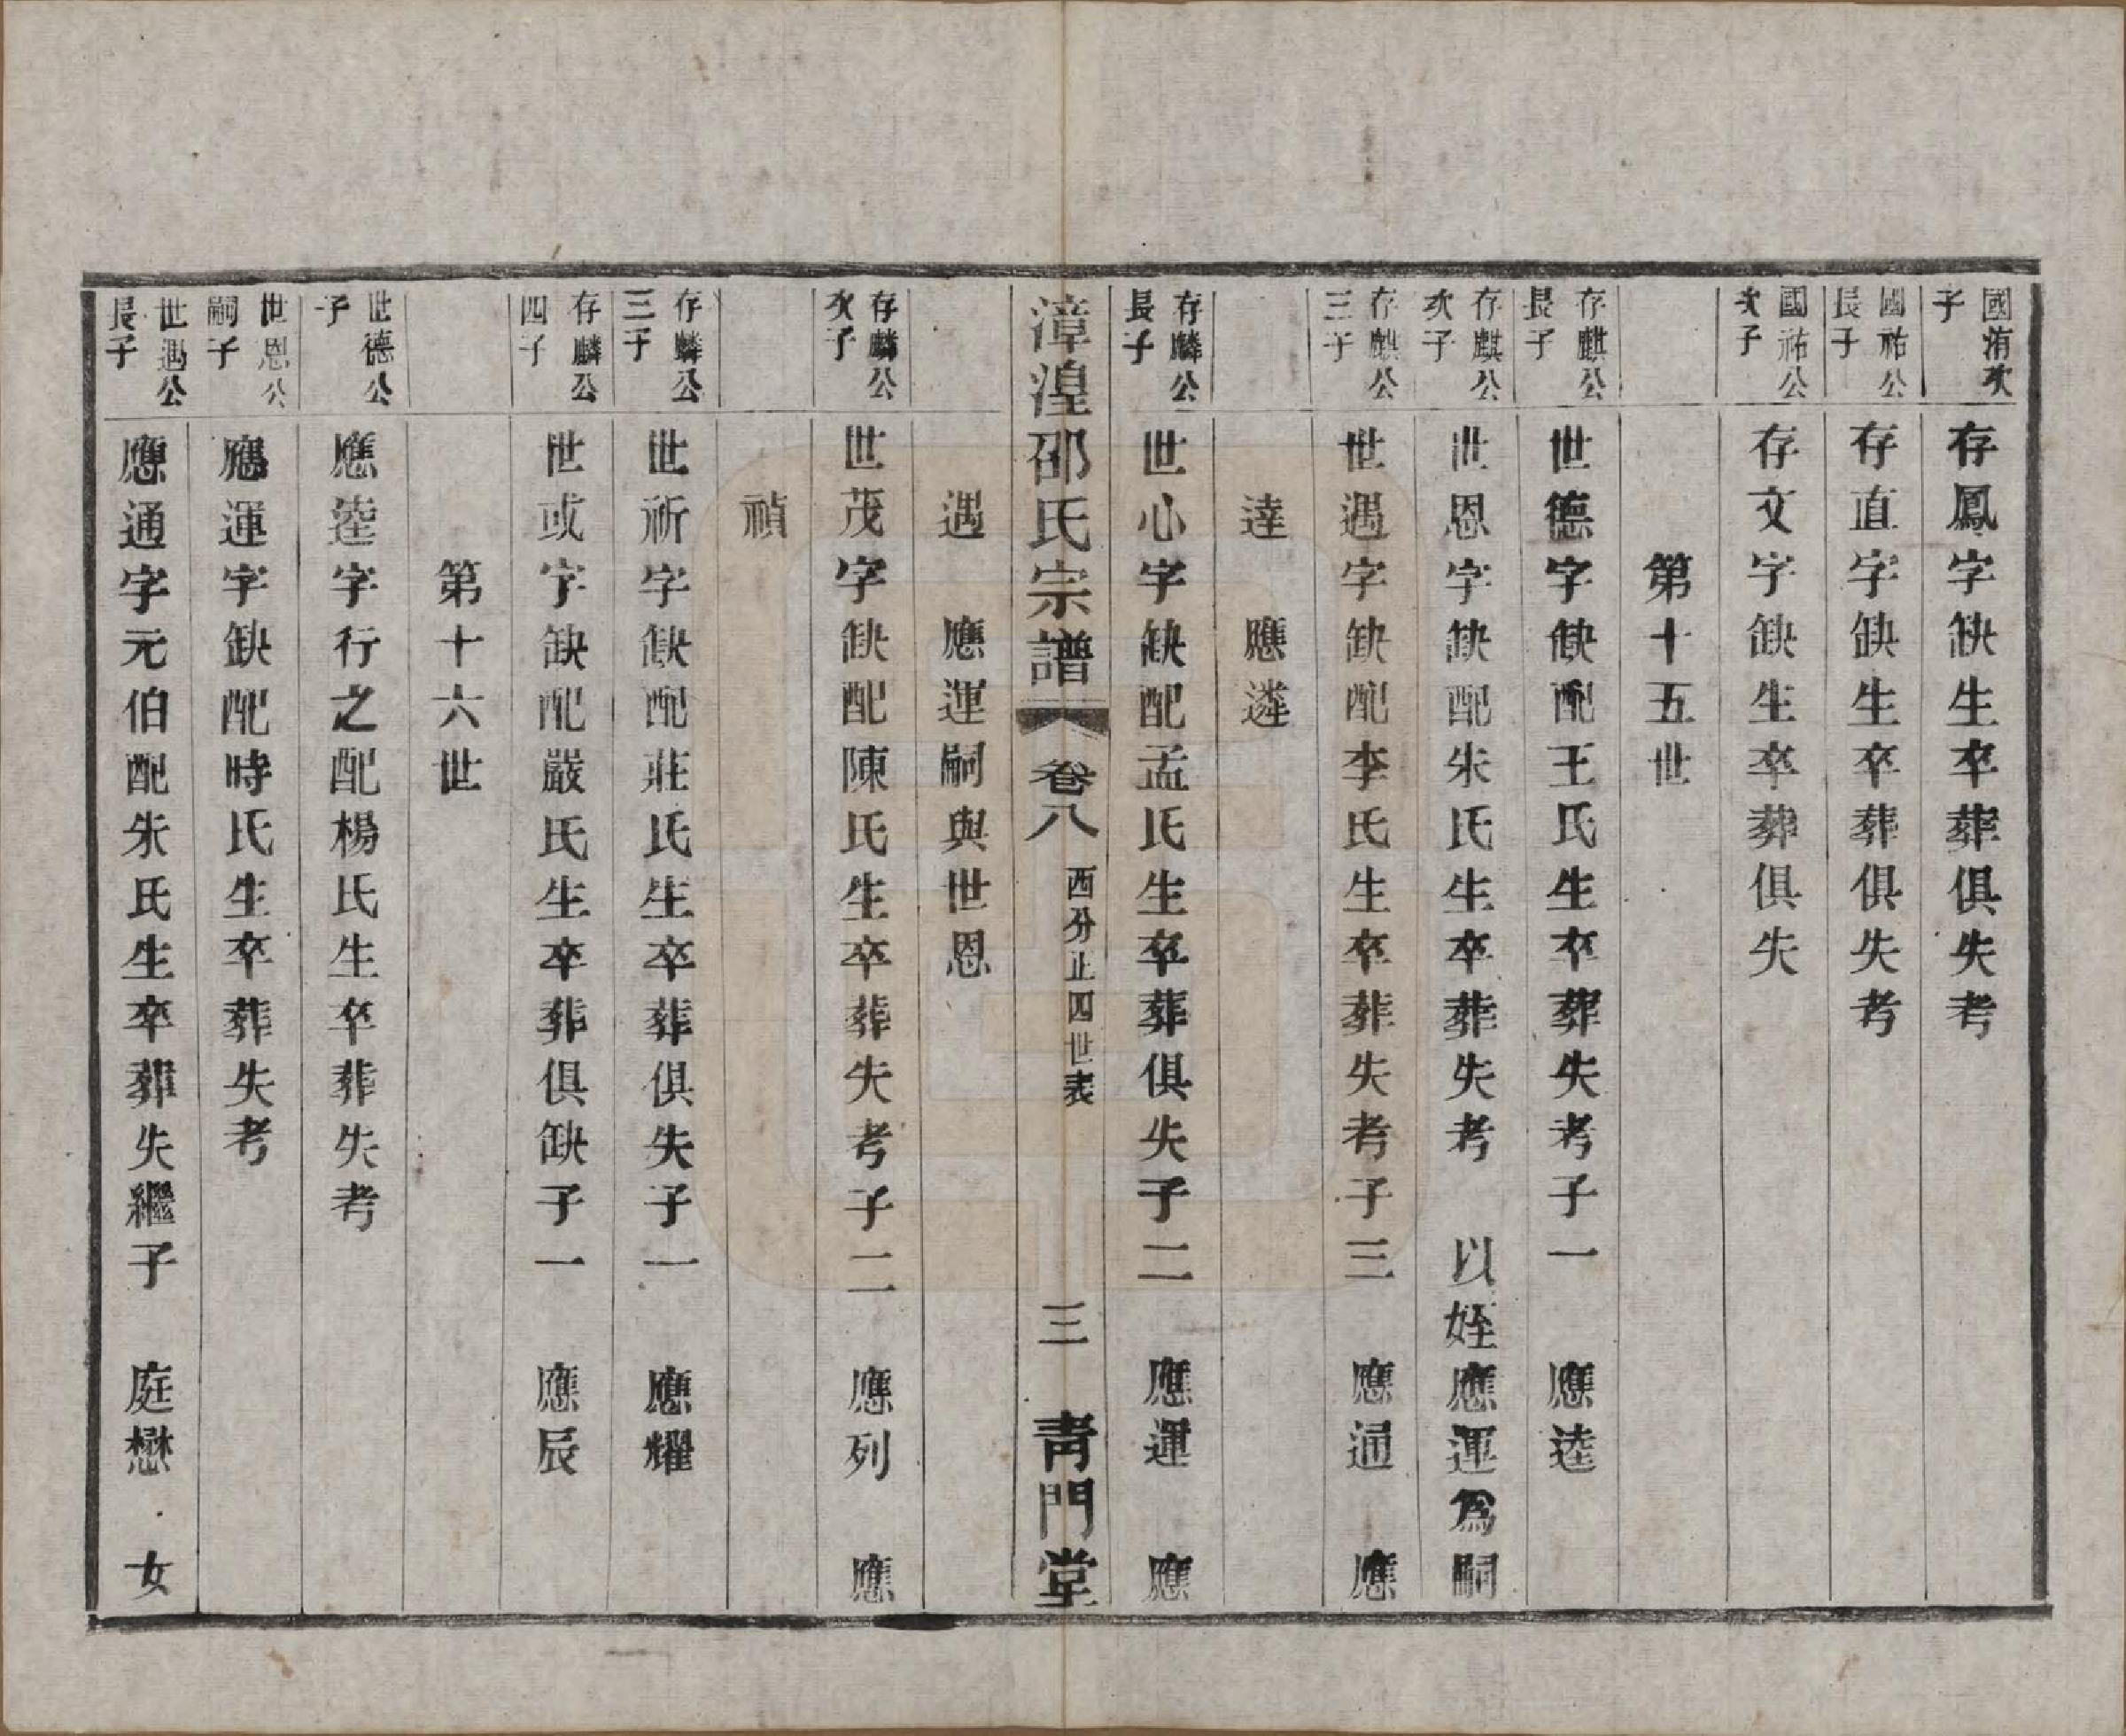 國洧次子 存鳳字缺生卒葬俱失考
國祐公長子 存直字缺生卒葬俱失考
國祐公次子 存文字缺生卒葬俱失
第十五世
存麒公長子 世德字缺配王氏生卒葬失考子一 應逵
存麒公次子 世恩字缺配朱氏生卒葬失考 以姪應運為嗣
存麒公三子 世遇字缺配李氏生卒葬失考子三 應通 應
達 應遴
存麟公長子 世心字缺配孟氏生卒葬俱失子二 應運 應
漳湟邵氏宗譜 卷八 西分止四世表 三 青門堂
遇 應運嗣與世恩
存麟公次子 世茂字缺配陳氏生卒葬失考子二 應列 應
禎
存麟公三子 世祈字缺配莊氏生卒葬俱失子一 應耀
存麟公四子 世或字缺配嚴氏生卒葬俱缺子一 應辰
第十六世
世德公子 應逵字行之配楊氏生卒葬失考
世恩公嗣子 應運字缺配時氏生卒葬失考
世遇公長子 應通字元伯配朱氏生卒葬失繼子 庭懋 女